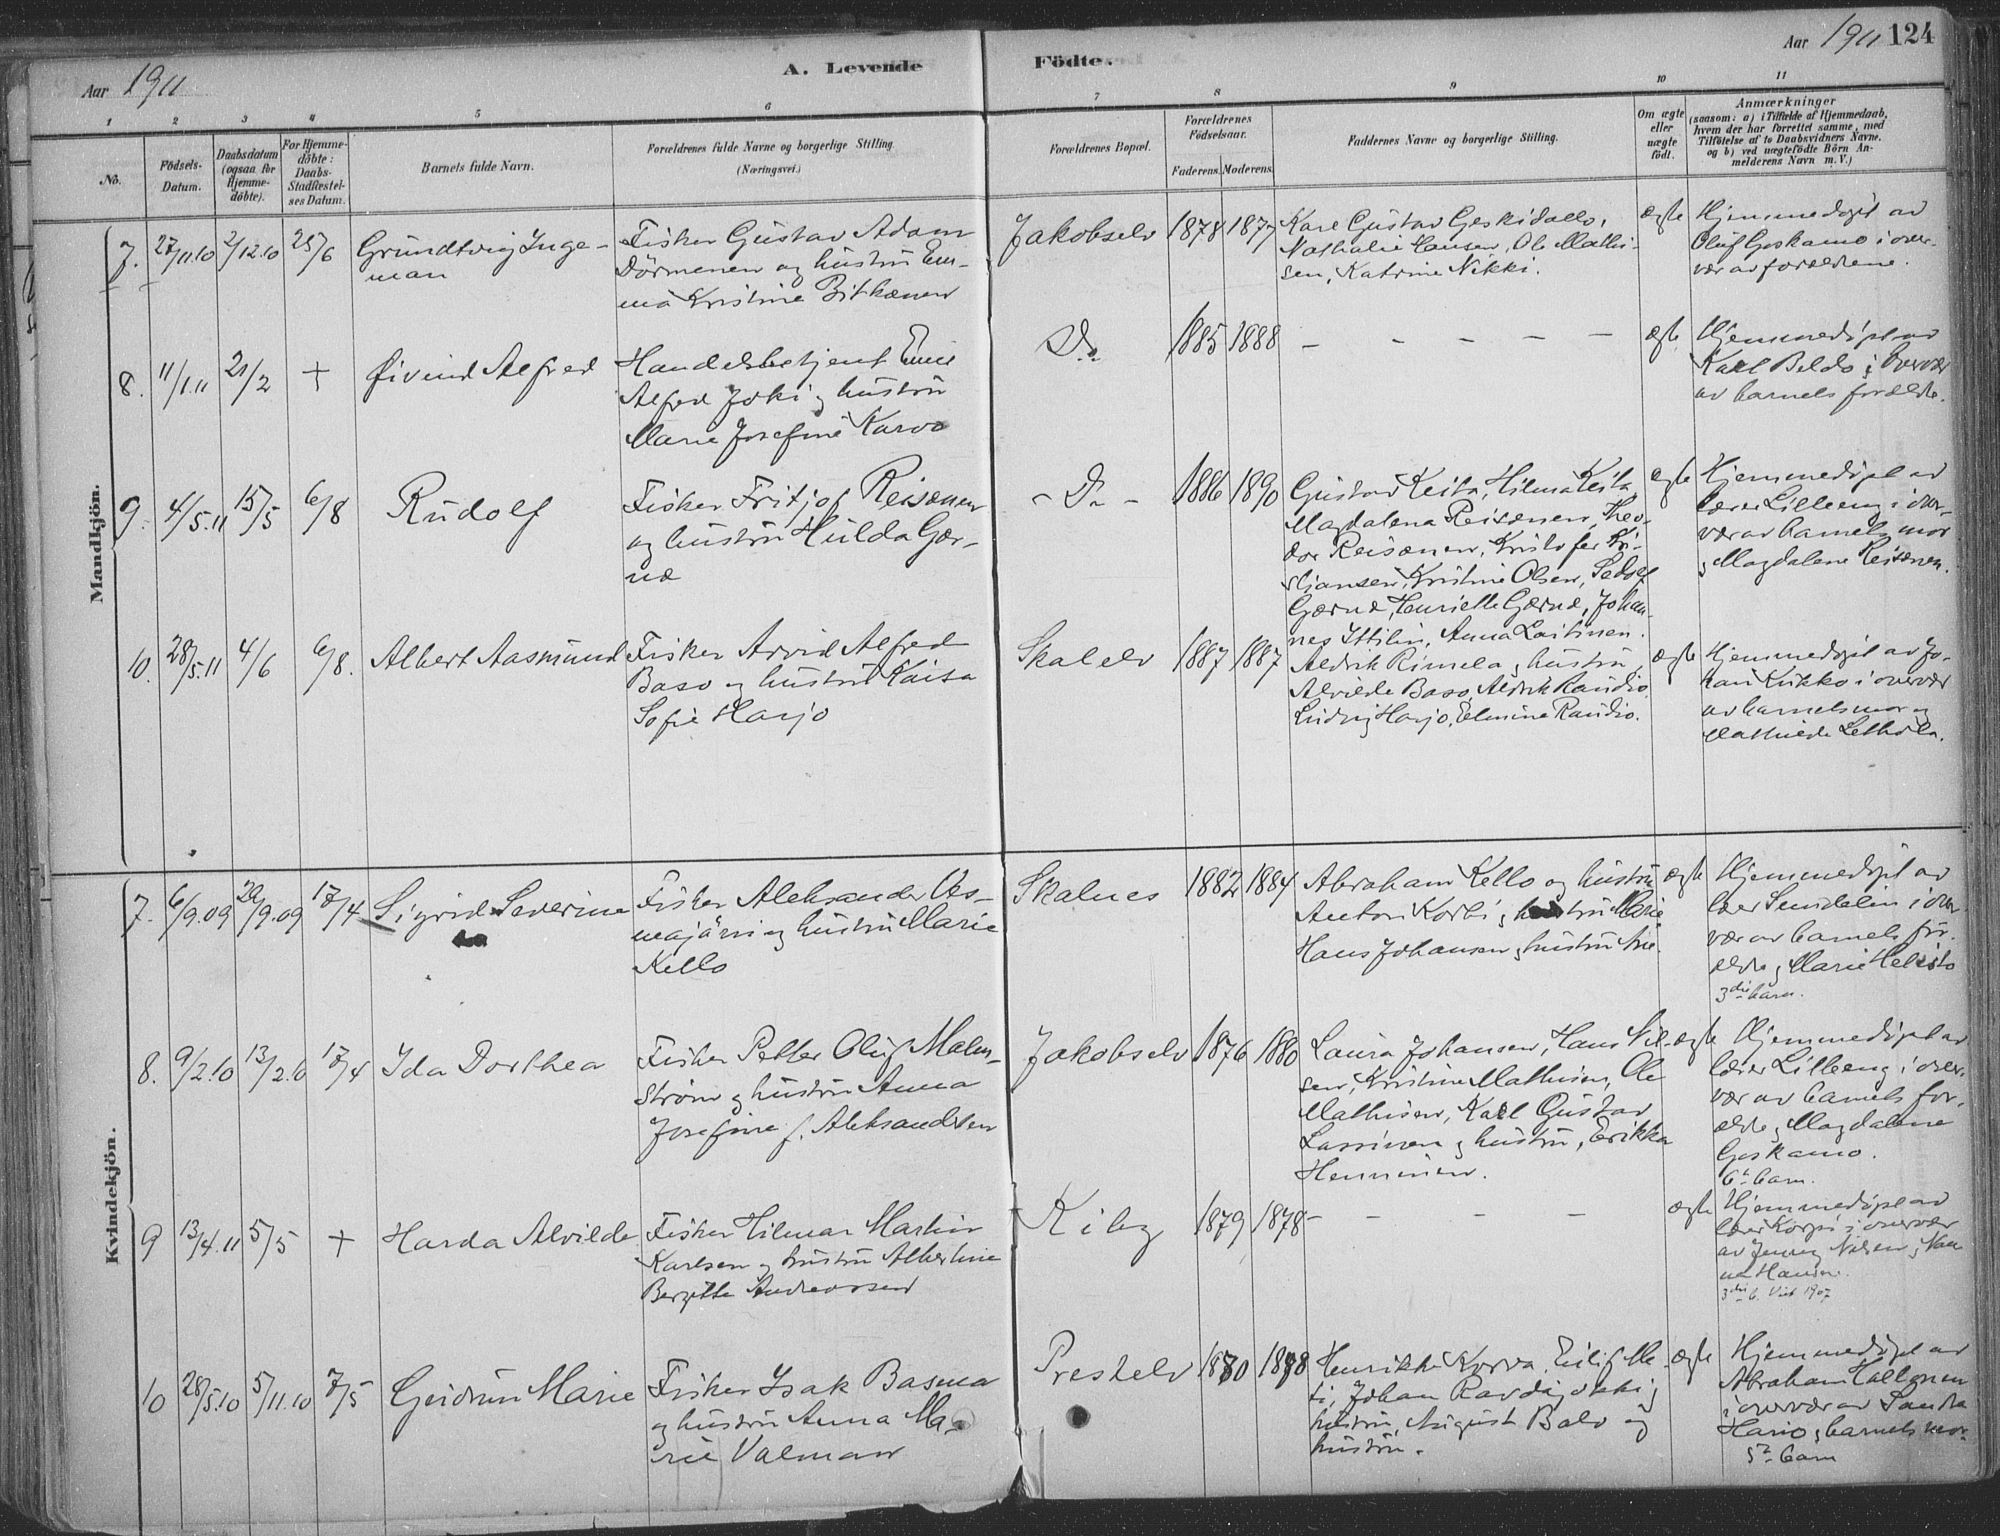 Aar 1911
A. Levende
Födte.
Aar 1911 124
1 2 3 4 5 6 7 8 9 10 11
No.
Födsels-Datum.
Daabsdatum (ogsaa for Hjemmedöbte).
For Hjemmedöbte: Daabs-Stadfæstelses Datum.
Barnets fulde Navn.
Forældrenes fulde Navne og borgerlige Stilling
(Næringsvei.)
Forældrenes Bopæl.
Forældrenes Födselsaar.
Faderens. Moderens.
Faddernes Navne og borgerlige Stilling.
Om ægte eller uægte födt.
Anmærkninger
(saasom: a) i Tilfælde af Hjemmedaab, hvem der har forrettet samme, med Tilföielse af to Daabsvidners Navne. og b) ved uægtefödte Börn Anmelderens Navn m. V.)
Mandkjön.
7. 27/11.10 2/12.10 25/6 Grundtvig Inge-
man
Fisker Gustav Adam
Dörmenen og hustru Em-
ma Kristine Pitkænen
Jakobselv 1878 1877
Karl Gustav Geskidallo,
Nathalie Hansen, Ole Mathi-
sen, Katrine Nikki.
ægte
Hjemmedøpt av
Oluf Goskamo i over-
vær av forældrene.
8. 11/1.11 21/2 + Øivind Alfred
Handelsbetjent Emil
Alfred Joki og hustru
Marie Josefine Karvo
Do 1885 1888 – – – – –
ægte
Hjemmedøpt av
Karl Beldo i overvær
av barnets forældre.
9. 4/5.11 15/5 6/8 Rudolf
Fisker Fritjof Reisænen
og hustru Hulda Gær-
næ
– D – 1886 1890
Gustav Keita, Hilma Keita
Magdalena Reisænen, Theo-
dor Reisænen, Kristofer Kri-
stjansen, Kristine Olsen, Sedolf
Gærnæ, Henriette Gærnæ, Johan-
nes Ittilin, Anna Laitinen.
ægte
Hjemmedøpt av
lærer Lilleeng i over-
vær av barnets mor
og Magdalene Reisænen.
10. 28/5.11 4/6 6/8. Albert Aasmund
Fisker Arvid Alfred
Baso og hustru Kaisa
Sofie Harjo
Skalelv 1887 1887
Aldrik Rimela og hustru,
Alvilde Baso, Aldrik Raudio,
Ludvig Harjo, Elmine Raudio.
ægte
Hjemmedøpt av Jo-
han Kukko i overvær
av barnets mor og
Mathilde Lethola.
Kvindekjön.
7. 6/9.09 20/9.09 17/4 Sigrid Severine
Fisker Aleksander Ves-
majärvi og hustru Marie
Kello
Skalnes 1882 1884
Abraham Kello og hustru
Anton Korbi og hustru Marie
Hans Johansen og hustru Brie.
ægte
Hjemmedøpt av
lærer Sundelin i over-
vær av barnets for-
ældre og Marie Heleisto
3die barn.
8. 9/2.10 13/2.10 17/4 Ida Dorthea
Fisker Petter Oluf Malm-
strøm og hustru Anna
Josefine f. Aleksandersen
Jakobselv 1876 1880
Laura Johansen, Hans Nil-
sen, Kristine Mathisen, Ole
Mathisen, Karl Gustav
Lassinen og hustru, Erikka
Henninen.
ægte
Hjemmedøpt av
lærer Lilleeng i over-
vær av barnets for-
ældre og Magdalene
Goskamo.
6te barn.
9 13/4.11 5/5 + Harda Alvilde
Fisker Hilmar Martin
Karlsen og hustru Albertine
Bergitte Andreassen
Kiby 1879 1878 – – – – –
ægte
Hjemmedøpt av
lærer Korpi i overvær
av Jenny Nilsen og Nan-
na Hansen.
3die b. Viet 1907
10 28/5.10 5/11.10 7/5 Gudrun Marie
Fisker Isak Basma
og hustru Anna Ma-
rie Valman
Prestelv 1870 1878
Henrikke Korva, Eilif Me-
ti, Johan Raudajokki og
hustru, August Balo og
hustru.
ægte
Hjemmedøpt av
Abraham Haltonen
i overvær av Sanda
Harjo og barnets mor
5te barn